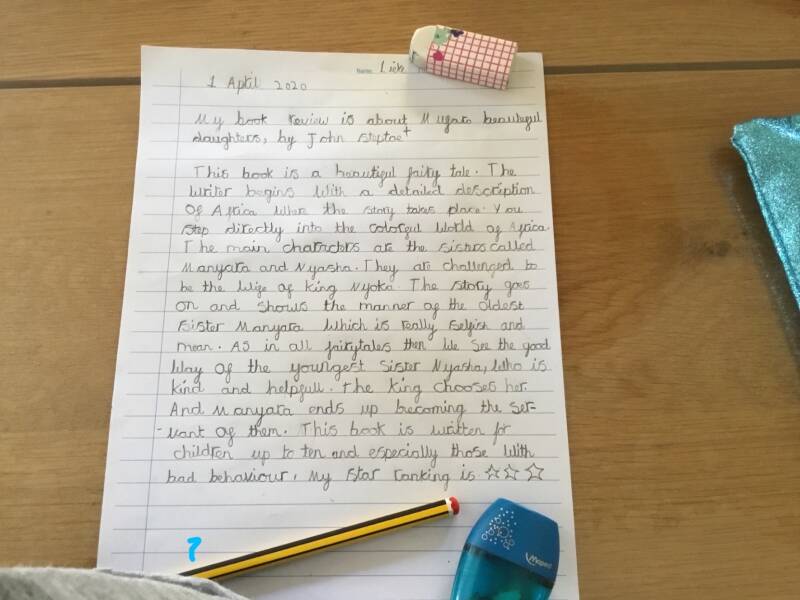 Name:
1 April 2020
My book review is about Mufaro beautiful
daughters, by John Steptoe
This book is a beautiful fairy tale. The
writer begins with a detailed description
of Africa where the story takes place. You
step directly into the colorful world of Africa.
The main characters are the sisters called
Manyara and Nyasha. They are challenged to
be the wife of king Nyoka. The story goes
on and shows the manner of the oldest
sister Manyara which is really selfish and
mean. As in all fairytales then we see the good
way of the youngest sister Nyasha, who is
kind and helpfull. The king chooses her.
And Manyara ends up becoming the ser-
-vant of them. This book is written for
children up to ten and especially those with
bad behaviour, My star ranking is ☆☆☆
?
Maped